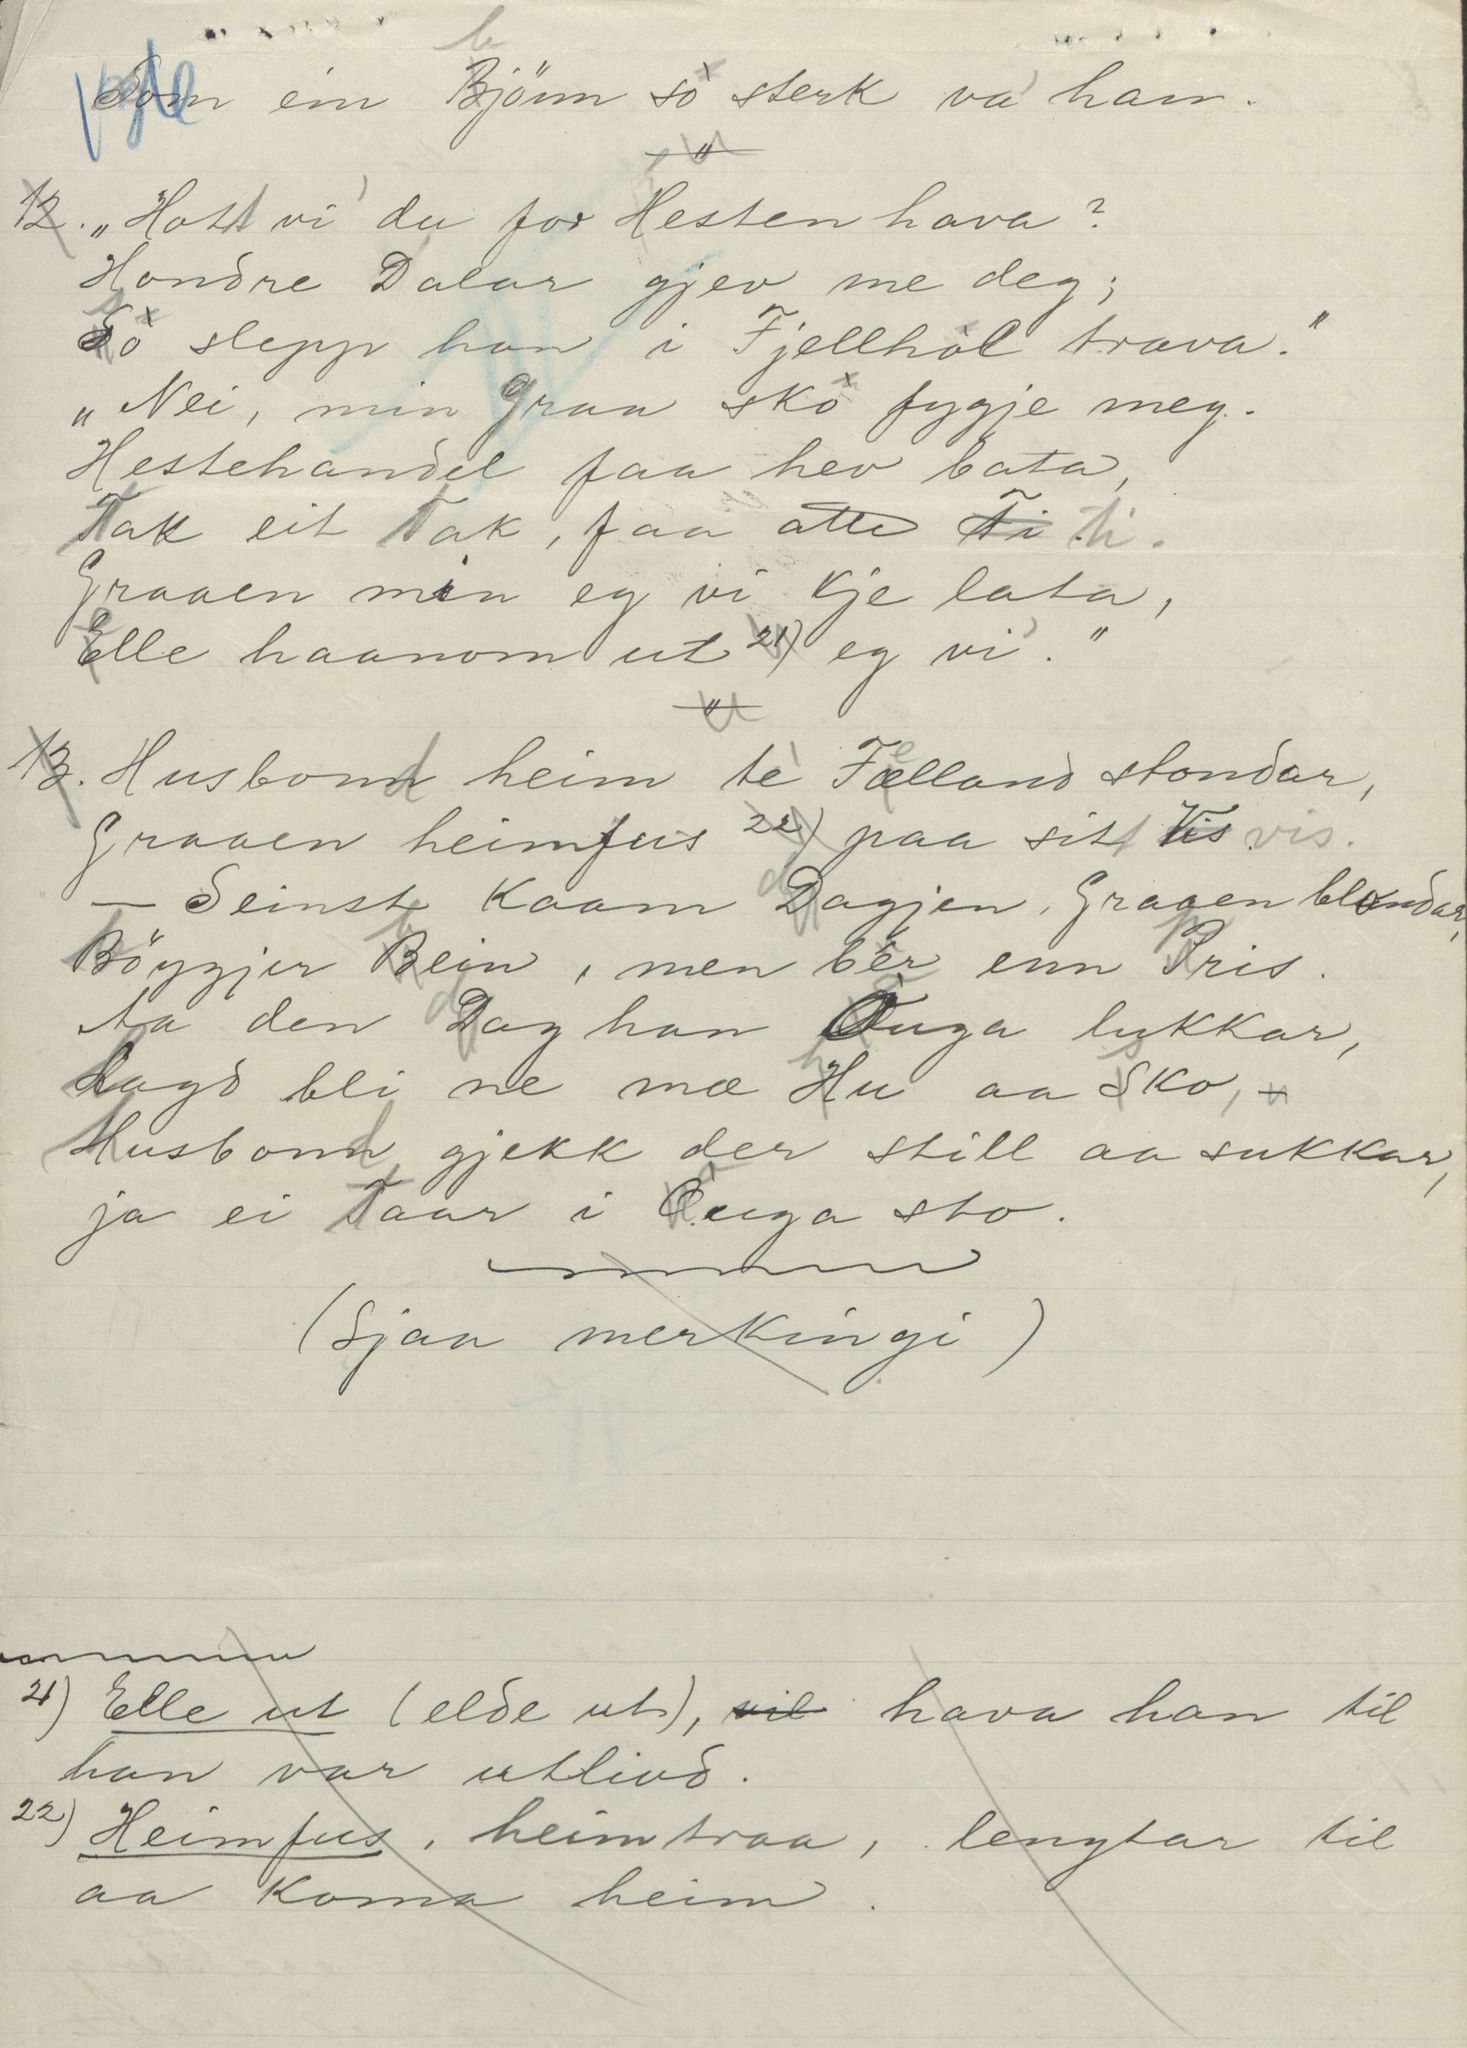 Som ein Bjönn so sterk va han.
"
12. „Hott vi du for Hesten hava?
Hondre Dalar gjev me deg;
So slepp han i Fjellhol trava."
„Nei, min Graa sko fygje meg.
Hestehandel faa hev bata,
Tak eit Tak, faa atte Ti ti.
Graaen min eg vi kje lata,
Elle haanom ut 21) eg vi."
"
13. Husbond heim te Fælland stondar,
Graaen heimfus 22) paa sitt Vis vis.
— Seinste Kaam Dagjen, Graaen blondar,
Böyggjer Bein, men bèr enn Pris.
ta den Dag han Ouga lukkar,
Lagd bli ne mæ Hu aa Sko, –
Husbond gjekk der still aa sukkar,
ja ei Taar i Ouga sto.
(Sjaa merkingi)
21) Elle ut (elde ut), vil hava han til
han var utlivd.
22) Heimfus, heimtraa, lengtar til
aa koma heim.